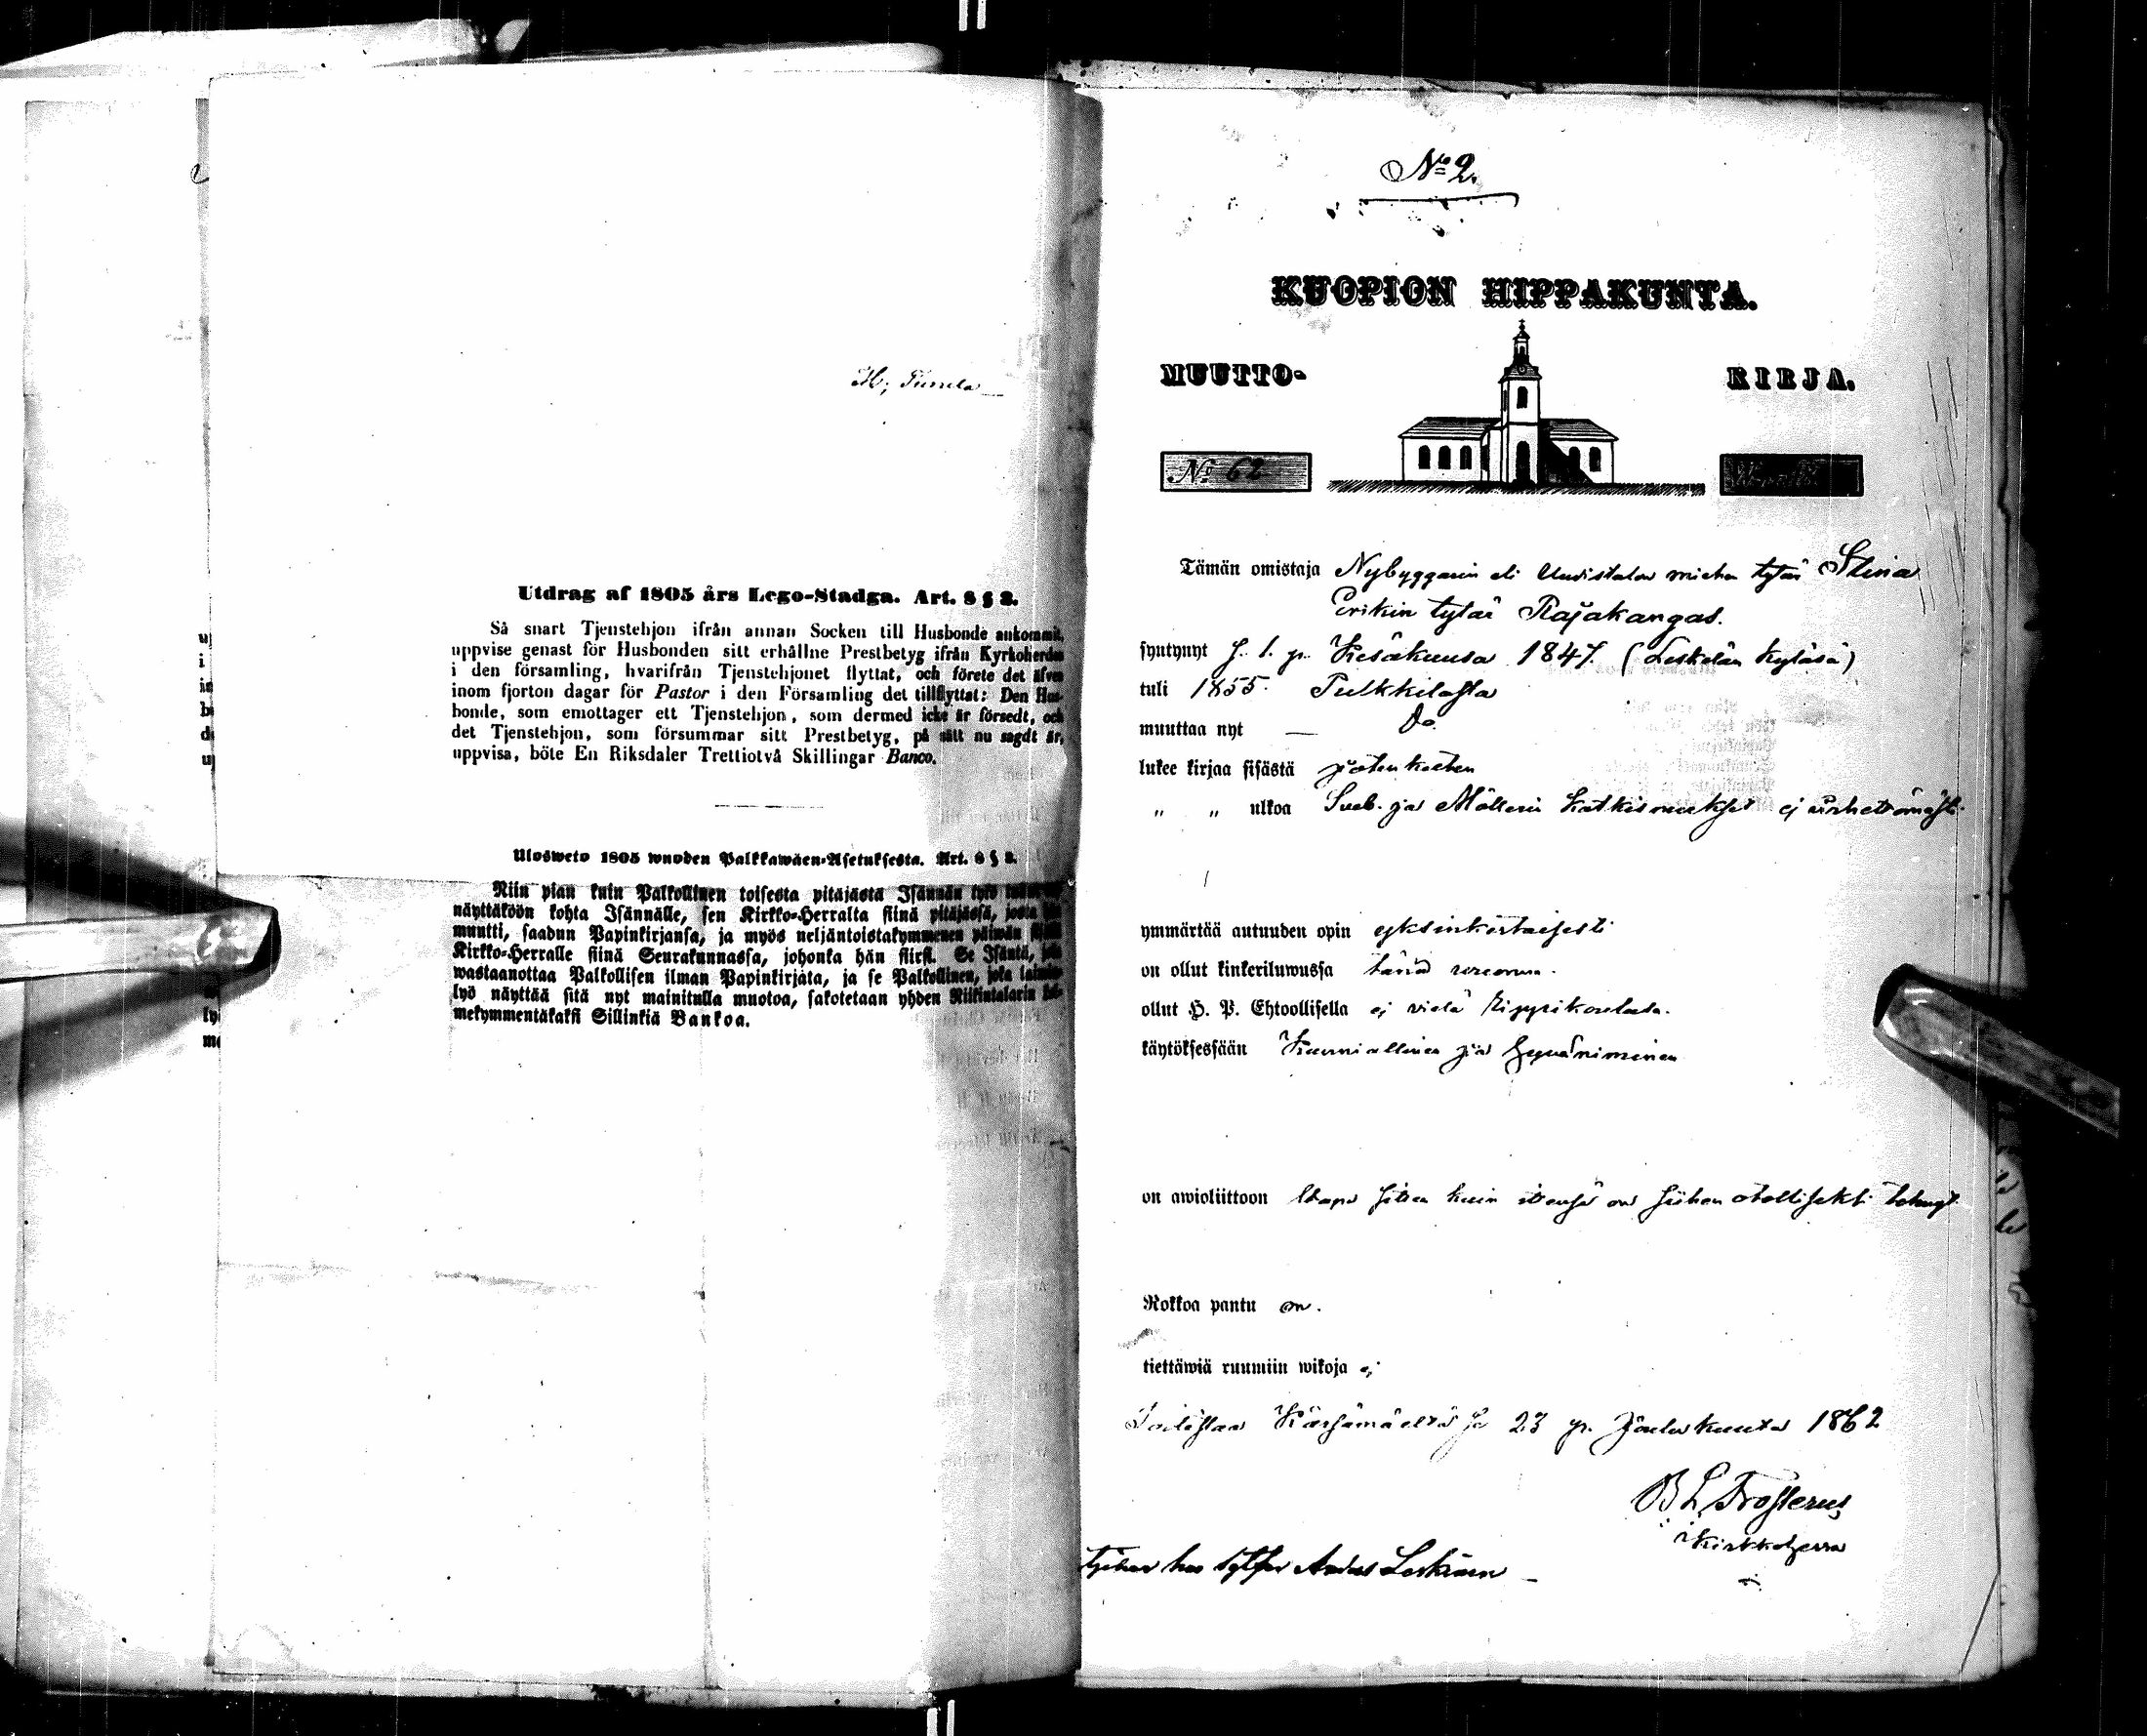 Utdrag af 1805 års Lego-Stadga. Art. 8 § 3.
Så snart Tjenstehjon ifrån annan Socken till Husbonde ankommit,
uppvise genast för Husbonden sitt erhållne Prestbetyg ifrån Kyrkoherden
i den församling, hvarifrån Tjenstehjonet flyttat, och förete det äfven
inom fjorton dagar för Pastor i den Församling det tillflyttat: Den Hus-
bonde, som emottager ett Tjenstehjon, som dermed icke är försedt, och
det Tjenstehjon, som försummar sitt Prestbetyg, på sätt nu sagdt är,
uppvisa, böte En Riksdaler Trettiotvå Skillingar Banco.
Ulosweto 1805 wuoden Palkkawäen-Asetuksesta. Art. 8 § 3.
Niin pian kuin Palkollinen toisesta pitäjästä Isännän työ
näyttäköön kohta Isännälle, sen Kirkko-Herralta siinä pitäjässä, josta
muutti, saadun Papinkirjansa, ja myös neljäntoistakymmenen päiwän
Kirkko-Herralle siinä Seurakunnassa, johonka hän siirsi. Se Isäntä, joka
wastaanottaa Palkollisen ilman Papinkirjata, ja se Palkollinen, joka
lyö näyttää sitä nyt mainitulla muotoa, sakotetaan yhden Riikintalarin kol-
mekymmentäkaksi Sillinkiä Bankoa.
No 2.
KUOPION HIPPAKUNTA.
MUUTTO- KIRJA.
No 62
Tämän omistaja Nybyggarin eli Uudistalon miehen tytär Stina
Erikin tytär Rajakangas.
syntynyt s. 1. p. Kesäkuusa 1847. (Leskelän kyläsä)
tuli 1855. Pulkkilasta
muuttaa nyt — Do
lukee kirjaa sisästä jotenkuten
" " ulkoa Sveb. ja Möllerin Katkismukset ej virhettömästi.
ymmärtää autuuden opin yksinkertaisesti
on ollut kinkeriluwussa tänä vuonna.
ollut H. P. Ehtoollisella ej vielä Rippikoulusa.
käytöksessään Kunniallinen ja hywäniminen
on awioliittoon Wapa siten kuin itsensä on siihen otolliseksi tehnyt
Rokkoa pantu on.
tiettäwiä ruumiin wikoja ej
Todistaa Kärsämäeltä se 23 p. Joulukuuta 1862
B L Frosterus
Kirkkoherra